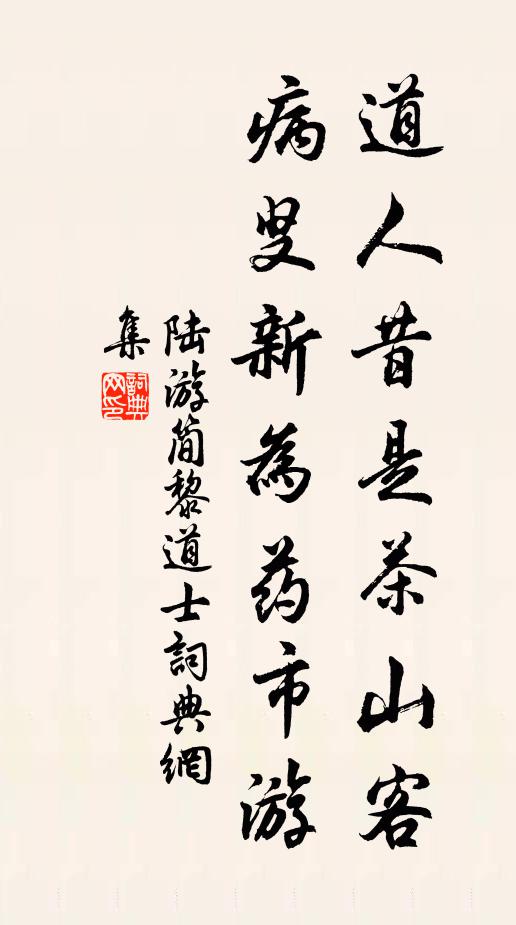 道人昔是茶山客
病叟新為药市游
陆游简黎道士詞典網
集
詞典网印